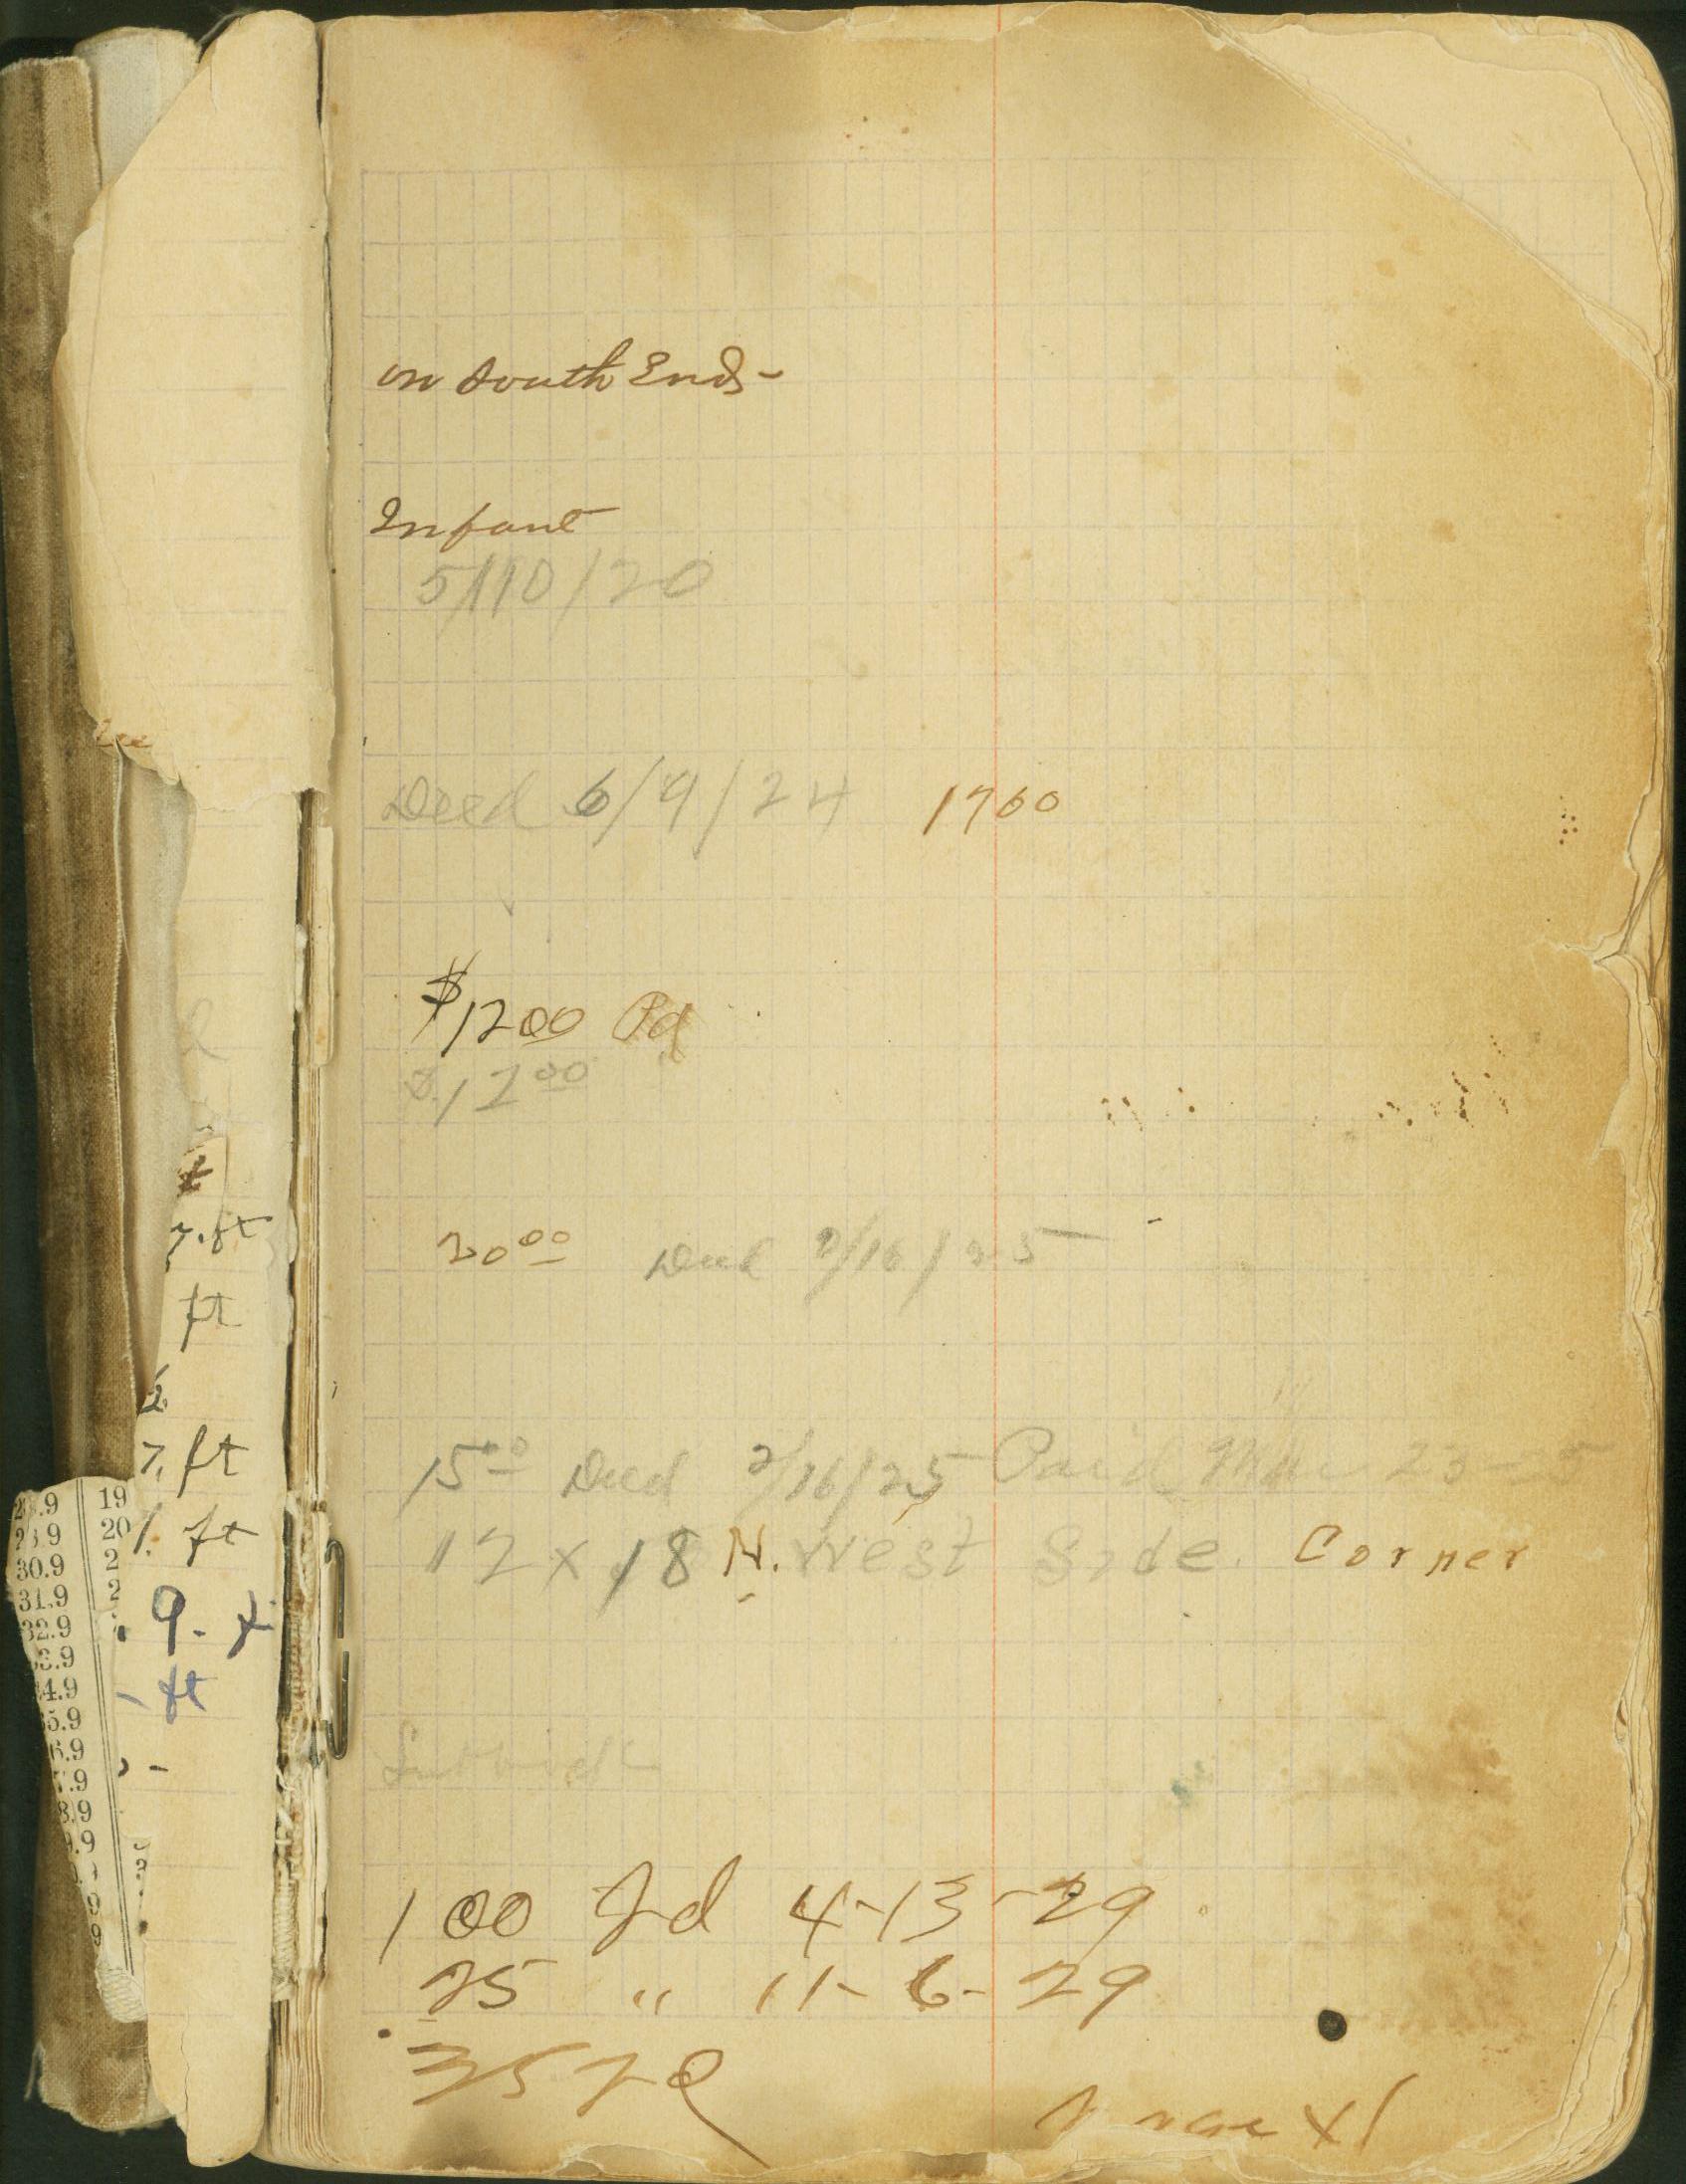 on South End -
Infant
5/10/20
Deed 6/9/24 1760
$12 00 Pd
$12 00
20 00 Deed 2/16/25
15 00 Deed 2/16/25 Paid Mar 23-25
12 x 18 N. West Side. Corner
1 00 Pd 4-13-29
25 " 11-6-29
35
ft
ft
7. ft
1. ft
9.
- ft
.9 19
.9 20
30.9 2
31.9 2
32.9
3.9
4.9
5.9
6.9
.9
8.9
9.9
9
9